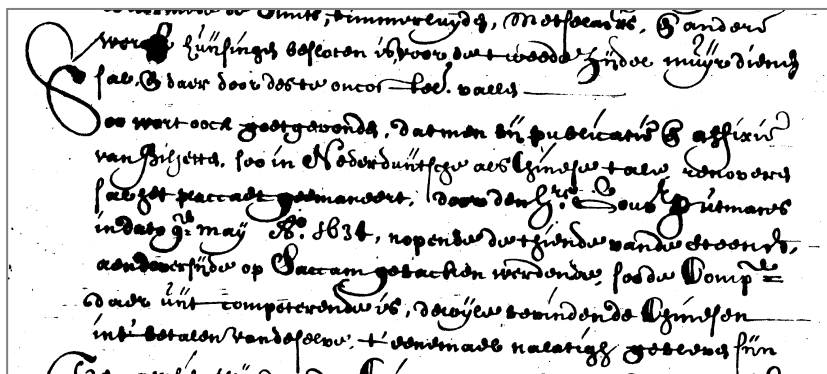 timmerluyden, Metselaers, & andere
werck huijsinge besloten is, voor de tweede zijde muijr dienen
sal, & daer door des te oncostel. vallen
Soo wert oock goetgevonden, dat men bij publicatie & affixie
van Biljetten, soo in Nederduijtsche als Chinese tale, renoveren
sal het placcaet geemaneert, door den Hre. Gouvr. Putmans
in dato 9e. may Ao. 1634, nopende de thiende vande steenen,
aen d'oversijde op Saccam gebacken werdende, soo de Compe.
daer uijt competerende is, dewijle bevinden de Chinesen
int' betalen van deselve, t'eenemael nalatigh gebleven sijn